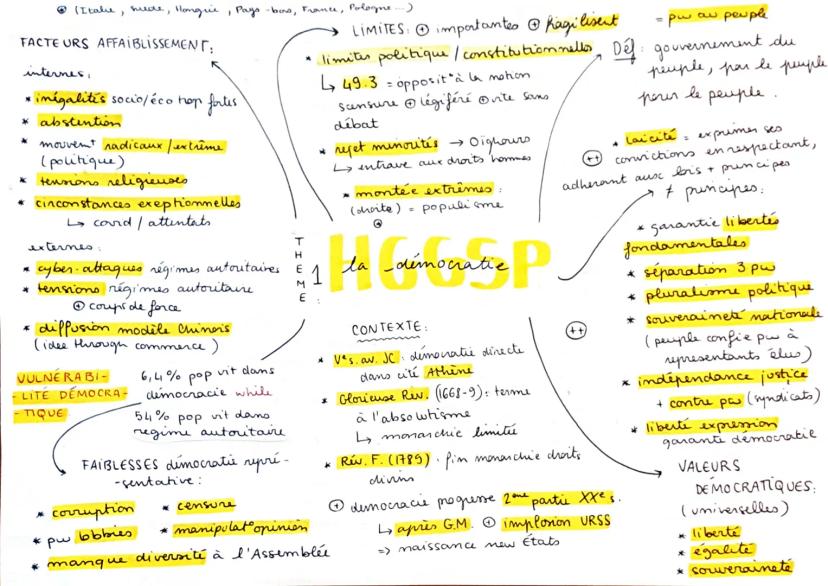 (Italie, Suède, Hongrie, Pays-bas, France, Pologne...)
FACTEURS AFFAIBLISSEMENT:
internes:
* inégalités socio/éco trop fortes
* abstention
* mouvemt radicaux/extrême
(politique)
* tensions religieuses
* circonstances exeptionnelles
↳ covid / attentats
externes:
* cyber-attaques régimes autoritaires
* tensions régimes autoritaire
⊕ coups de force
* diffusion modèle chinois
(idee through commerce)
VULNÉRABI-
-LITÉ DÉMOCRA-
-TIQUE
6,4% pop vit dans
démocracie while
54% pop vit dans
regime autoritaire
FAIBLESSES démocratie repré-
-sentative:
* corruption * censure
* pw lobbies * manipulat° opinion
* manque diversité à l'Assemblée
LIMITES: ⊕ importantes ⊕ fragilisent
* limites politique / constitutionnelles
↳ 49.3 = opposit° à la motion
sensure ⊕ légiféré ⊕ vite sans
débat
* rejet minorités → Oïghours
↳ entrave aux droits hommes
* montée extrêmes:
(droite) = populisme
THEME 1: HGGSP
la démocratie
CONTEXTE:
* Ve s. av. JC: démocratie directe
dans cité Athène
* Glorieuse Rév. (1668-9): terme
à l'absolutisme
↳ monarchie limitée
* Rév. F. (1789): fin monarchie droits
divins
⊕ democracie progresse 2eme partie XXe s.
↳ après G.M. ⊕ implosion URSS
=> naissance new États
= pw au peuple
Déf: gouvernement du
peuple, par le peuple
pour le peuple.
* laïcité = exprimer ses
⊕⊕ convictions en respectant,
adhérant aux lois + principes
≠ principes:
* garantie libertés
fondamentales
* séparation 3 pw
* pluralisme politique
* souveraineté nationale
(peuple confie pw à
représentants élus)
* indépendance justice
+ contre pw (syndicats)
* liberté expression
garante démocratie
++
VALEURS
DÉMOCRATIQUES:
(universelles)
* liberté
* égalité
* souveraineté